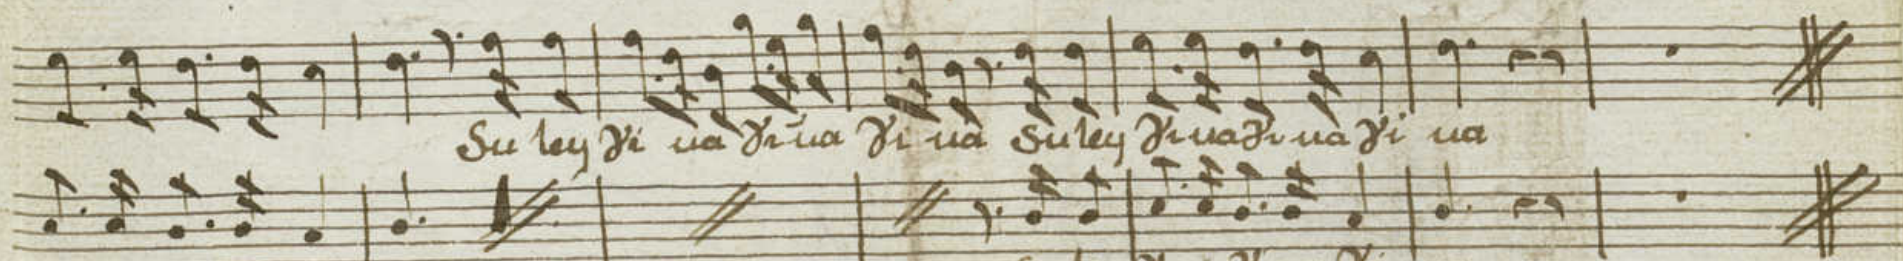 Su ley Vi ua Vi ua Vi ua Su ley Vi ua Vi ua Vi ua